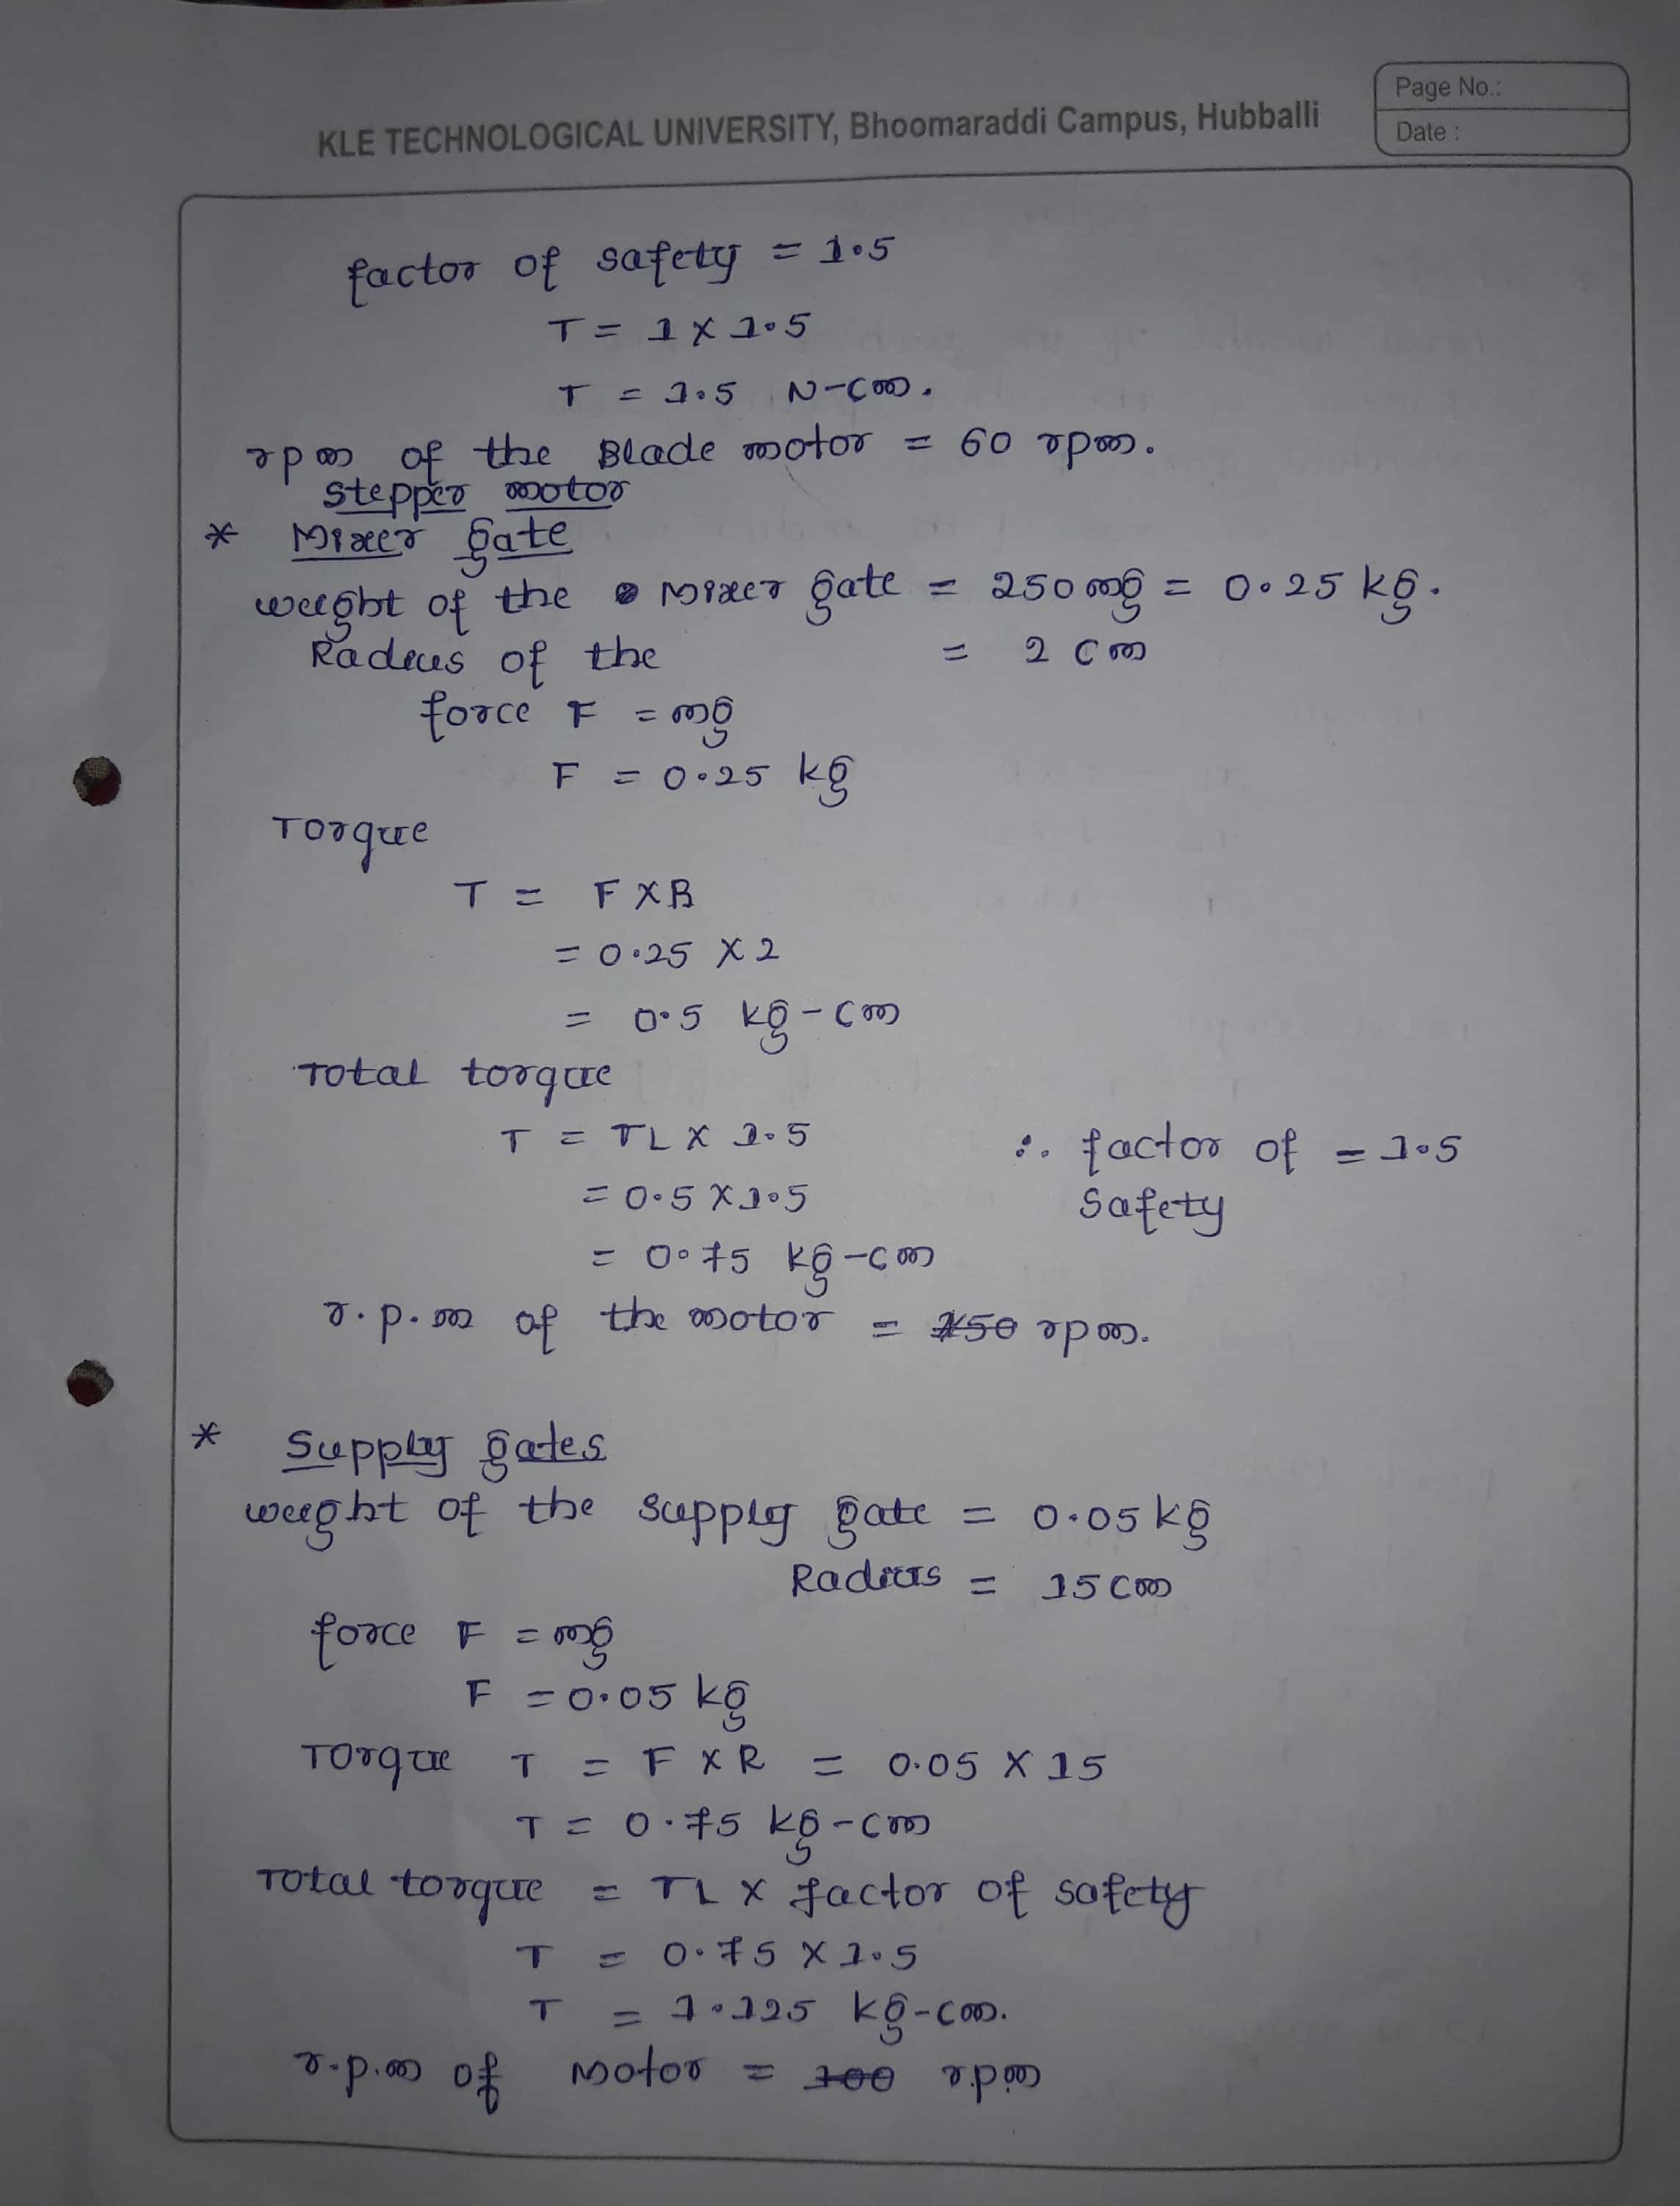 Page No.:
KLE TECHNOLOGICAL UNIVERSITY, Bhoomaraddi Campus, Hubballi
Date :
factor of safety = 1.5
T = 1 X 1.5
T = 1.5 N-cm.
rpm of the Blade motor = 60 rpm.
Stepper motor
* Mixer gate
weight of the Mixer gate = 250 mg = 0.25 kg.
Radius of the = 2 cm
force F = mg
F = 0.25 kg
Torque
T = F X R
= 0.25 X 2
= 0.5 kg-cm
Total torque
T = TL X 1.5 ∴ factor of = 1.5
= 0.5 X 1.5 Safety
= 0.75 kg-cm
r.p.m of the motor = 150 rpm.
* Supply gates
weight of the supply gate = 0.05 kg
Radius = 15 cm
force F = mg
F = 0.05 kg
Torque T = F X R = 0.05 X 15
T = 0.75 kg-cm
Total torque = TL X factor of safety
T = 0.75 X 1.5
T = 1.125 kg-cm.
r.p.m of Motor = 100 rpm